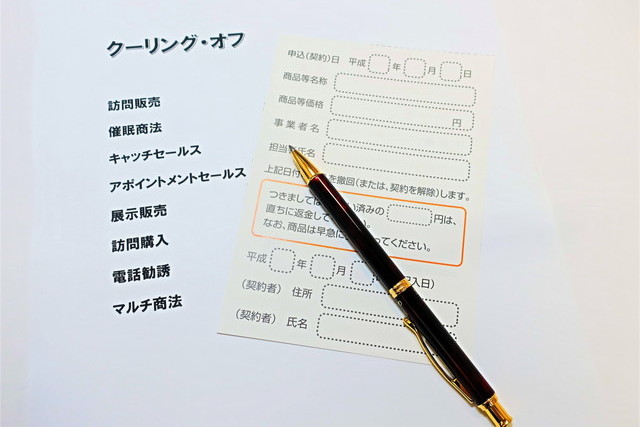 クーリング・オフ
訪問販売
催眠商法
キャッチセールス
アポイントメントセールス
展示販売
訪問購入
電話勧誘
マルチ商法
申込(契約)日 平成 年 月 日
商品等名称
商品等価格 円
事業者名
担当 氏名
上記日付 を撤回(または、契約を解除)します。
つきましては 済みの 円は、
直ちに返金して い。
なお、商品は早急に ってください。
平成 年 月 入日)
(契約者) 住所
(契約者) 氏名